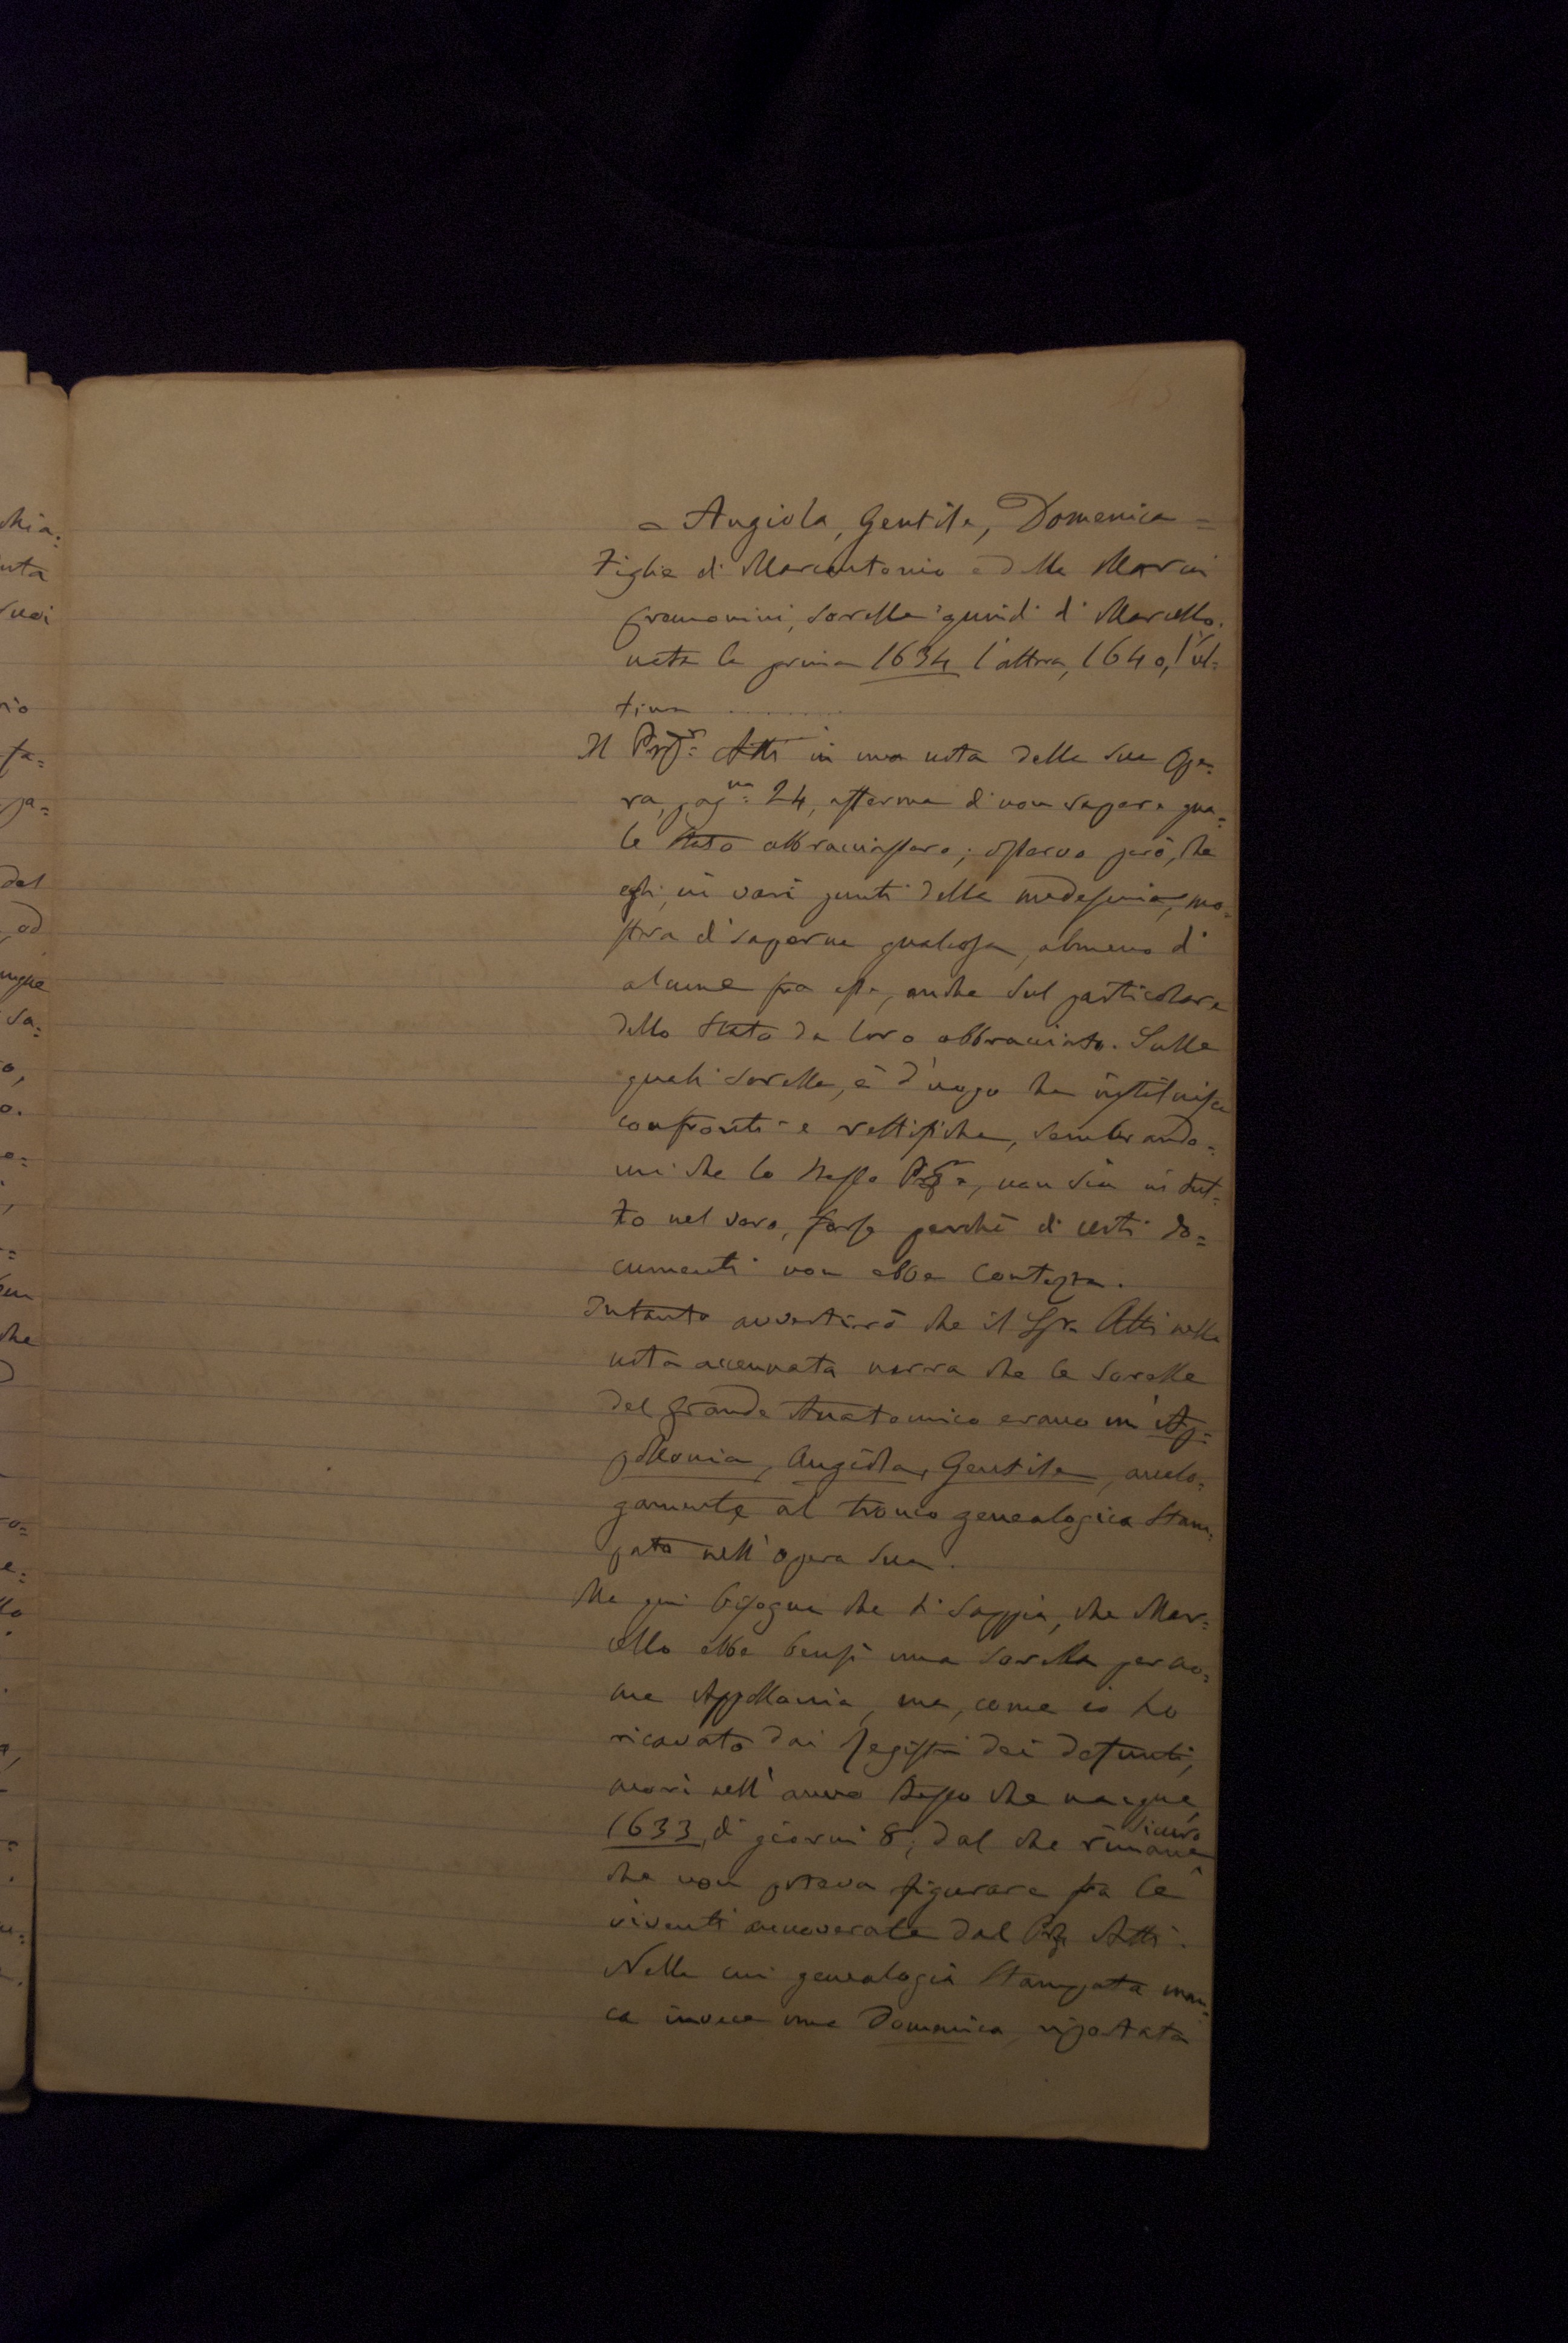 = Angiola, Gentile, Domenica =
Figlie di Marcantonio e della Maria
Cremonini, sorelle quindi di Marcello.
nata la prima 1634 l'altra, 1640, l'ul=
tima ..........
Il Profr: Atti in una nota della sua Ope=
ra, pagna: 24, afferma di non sapere qua=
le stato abbracciassero; osservo però, che
egli, in vari punti della medesima, mo=
stra di saperne qualcosa, almeno di
alcune fra esse, anche sul particolare
dello stato da loro abbracciato. Sulle
quali sorelle, è d'uopo che istituisca
confronti e rettifiche, sembrando=
mi che lo stesso Profr:, non sia in tut=
to nel vero, forse perchè di certi do=
cumenti non ebbe contezza.
Intanto avvertirò che il Sigr. Atti nella
nota accennata narra che le sorelle
del grande Anatomico erano un' Ap=
pollonia, Angiola, Gentile, analo=
gamente al tronco genealogico stam=
pato nell'opera sua.
Ma qui bisogna che si sappia, che Mar=
cello ebbe bensì una sorella per no=
me Appollonia, ma, come io ho
ricavato dai Registri dei defunti,
morì nell'anno stesso che nacque,
1633, di giorni 8; dal che rimane sicuro
che non poteva figurare fra le
viventi annoverate dal Prof Atti.
Nella cui genealogia stampata man=
ca invece una Domenica riportata
chia=
uta
suoi
rio
fa=
pa=
del
ad
unque
sa=
o,
o.
o=
che